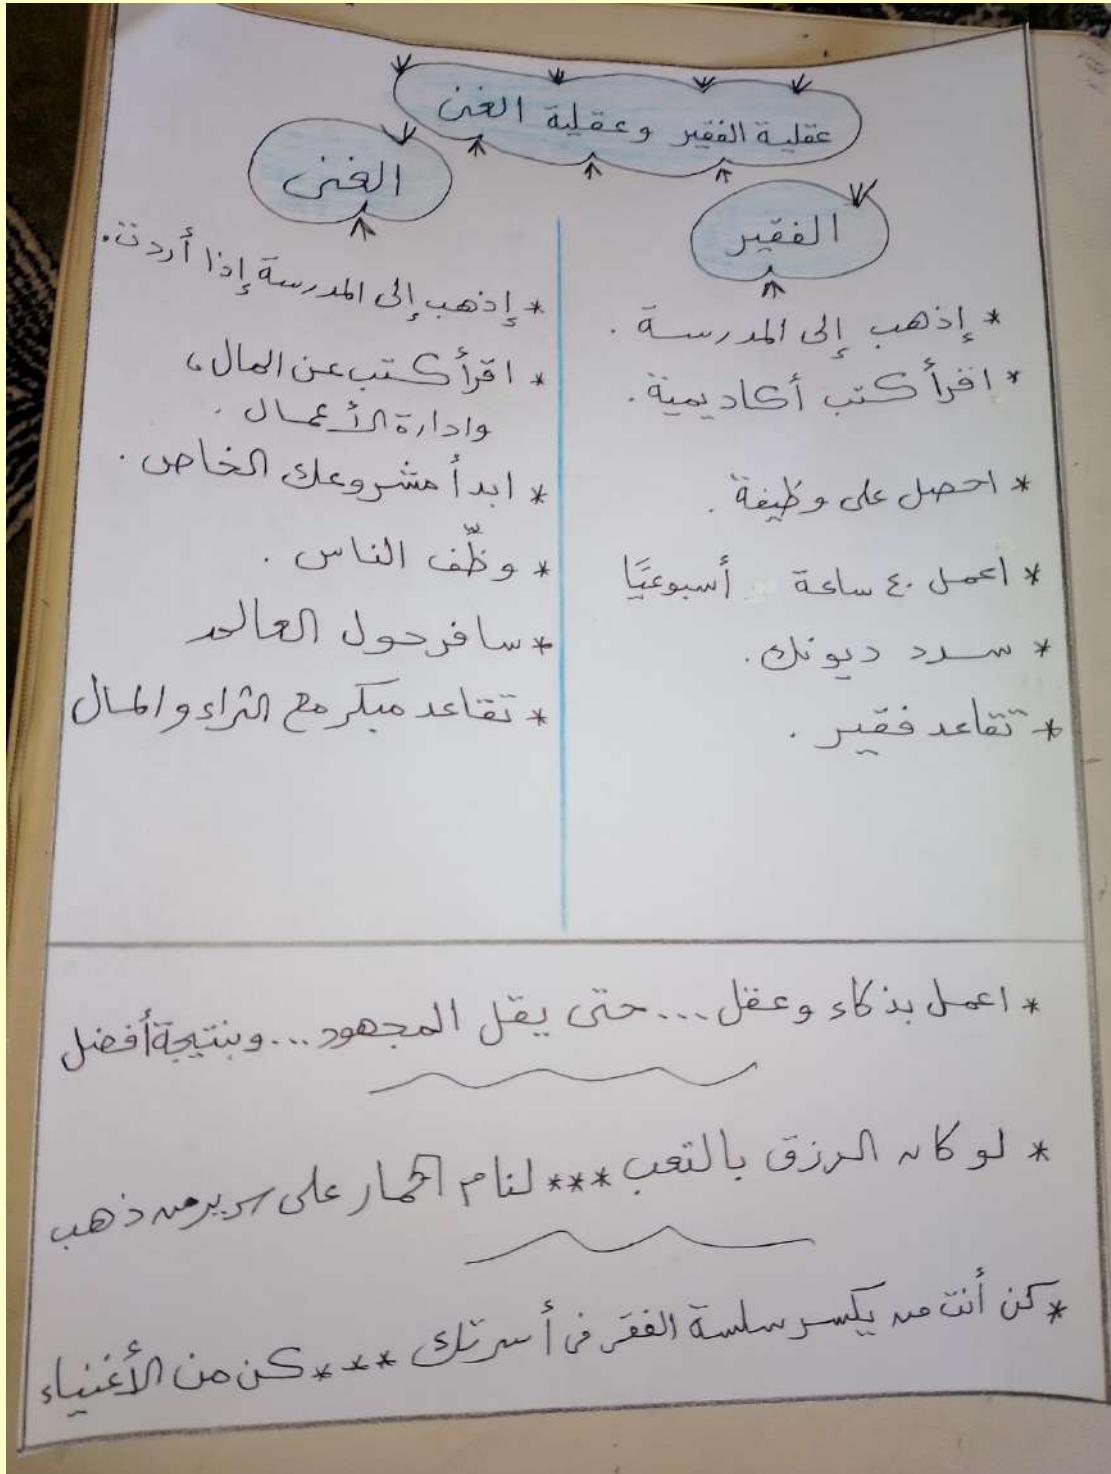 عقلية الفقير وعقلية الغنى
الفقير
* إذهب إلى المدرسة .
* اقرأ كتب أكاديمية .
* احصل على وظيفة .
* اعمل ٤٠ ساعة أسبوعيًا
* سدد ديونك .
* تقاعد فقير .
الغنى
* إذهب إلى المدرسة إذا أردت .
* اقرأ كتب عن المال ،
وادارة الأعمال .
* ابدأ مشروعك الخاص .
* وظّف الناس .
* سافر حول العالم
* تقاعد مبكر مع الثراء والمال
* اعمل بذكاء وعقل ... حتى يقل المجهود ... وبنتيجة أفضل
* لو كان الرزق بالتعب *** لنام الحمار على سرير من ذهب
* كن أنت من يكسر سلسة الفقر فى أسرتك *** كن من الأغنياء